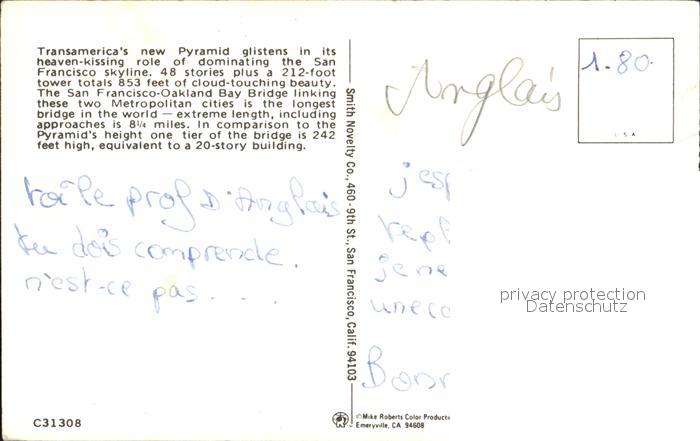 Transamerica's new Pyramid glistens in its
heaven-kissing role of dominating the San
Francisco skyline. 48 stories plus a 212-foot
tower totals 853 feet of cloud-touching beauty.
The San Francisco-Oakland Bay Bridge linking
these two Metropolitan cities is the longest
bridge in the world — extreme length, including
approaches is 8¼ miles. In comparison to the
Pyramid's height one tier of the bridge is 242
feet high, equivalent to a 20-story building.
le prof D'Anglais
tu dois comprende.
n'est-ce pas . . . .
C31308
Smith Novelty Co., 460-9th St., San Francisco, Calif. 94103
©Mike Roberts Color Producti
Emeryville, CA 94608
Anglais
1.80
U S A
j'esp
je ne
une co
Bonn
privacy protection
Datenschutz